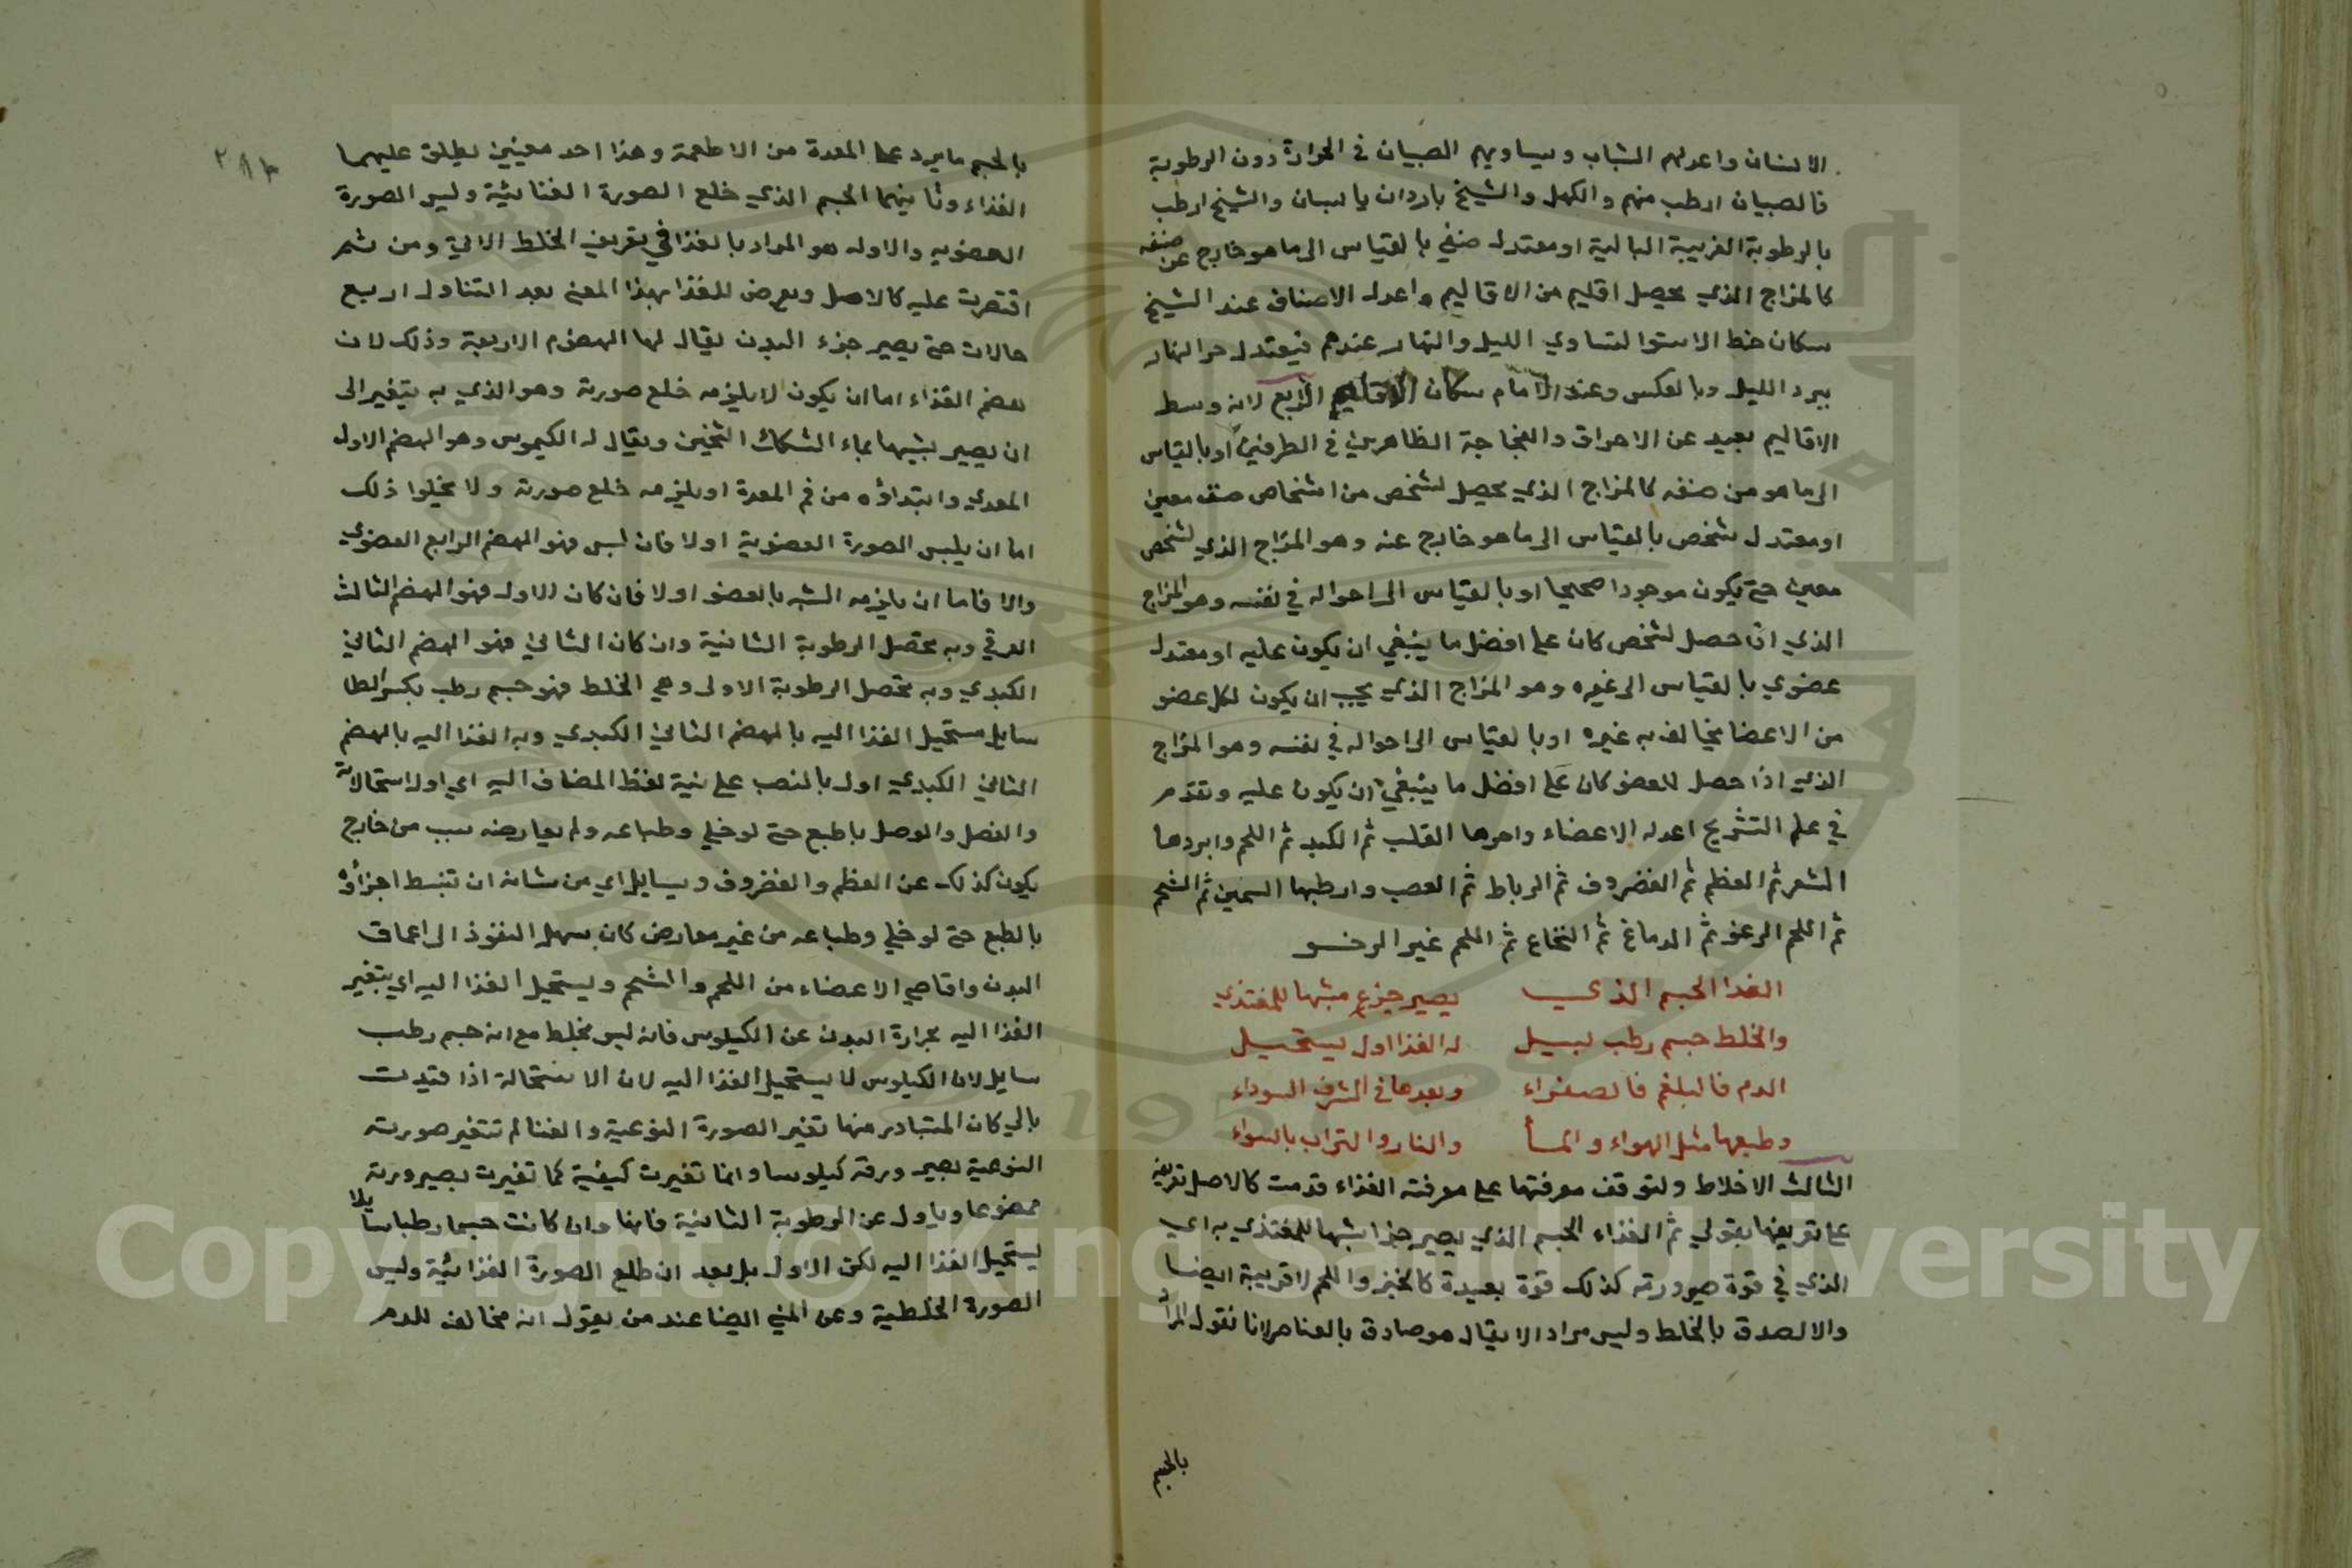 الانسان واعدلهم الشباب ويساويهم الصبيان في الحرارة دون الرطوبة
فالصبيان ارطب منهم والكهل والشيخ باردان يابسان والشيخ ارطب
بالرطوبة الغريبة البالية او معتدل صنفي بالقياس الى ما هو خارج عن صنفه
كالمزاج الذي يحصل اقليم من الاقاليم واعدل الاصناف عند الشيخ
سكان خط الاستوا لتساوي الليل والنهار عندهم فيعتدل حر النهار
ببرد الليل وبالعكس وعند الامام سكان الاقليم الرابع لانه وسط
الاقاليم بعيد عن الاحراق والفجاجة الظاهرين في الطرفين او بالقياس
الى ما هو من صنفه كالمزاج الذي يحصل لشخص من اشخاص صنف معين
او معتدل شخص بالقياس الى ما هو خارج عنه وهو المزاج الذي لشخص
معين حتى يكون موجودا صحيحا او بالقياس الى احواله في نفسه وهو المزاج
الذي اذا حصل لشخص كان على افضل ما ينبغي ان يكون عليه او معتدل
عضوي بالقياس الى غيره وهو المزاج الذي يجب ان يكون لكل عضو
من الاعضا يخالف به غيره او بالقياس الى احواله في نفسه وهو المزاج
الذي اذا حصل للعضو كان على افضل ما ينبغي ان يكون عليه وتقدم
في علم التشريح اعدل الاعضاء واحرها القلب ثم الكبد ثم اللحم وابردها
الشعر ثم العظم ثم الغضروف ثم الرباط ثم العصب وارطبها السمين ثم الشحم
ثم اللحم الرخو ثم الدماغ ثم النخاع ثم اللحم غير الرخو
الغذا الجسم الذي يصير جزء مشبها للمغتذي
والخلط جسم رطب لسيل له الغذا اول يستحيل
الدم فالبلغم فالصفراء وبعدها في الشرف السوداء
وطبعها مثل الهواء والمأ والنار والتراب بالسواء
الثالث الاخلاط ولتوقف معرفتها على معرفة الغذاء قدمت كالاصل تعريفه
على تعريفها بقولي ثم الغذاء الجسم الذي يصير جزا شبها للمغتذي به اي
الذي في قوة صيرورته كذلك قوة بعيدة كالخبز واللحم لا قريبة ايضا
والا لصدق بالخلط وليس مراد الا يقال هو صادق بالعناصر لانا نقول المراد
بالجسم
٢٨٣
بالجسم ما يرد على المعدة من الاطعمة وهذا احد معنيين يطلق عليهما
الغذاء وثانيهما الجسم الذي خلع الصورة الغذائية ولبس الصورة
العضويه والاول هو المراد بالغذا في تعريف الخلط الاتي ومن ثم
اقتصرت عليه كالاصل ويعرض للغذا بهذا المعنى بعد التناول اربع
حالات حتى يصير جزء البدن يقال لها الهضوم الاربعة وذلك لان
هضم الغذاء اما ان يكون لا يلزمه خلع صورته وهو الذي به يتغير الى
ان يصير شبيها بماء الشكك الثخين ويقال له الكيموس وهو الهضم الاول
المعدي وابتداؤه من فم المعدة او يلزمه خلع صورته ولا يخلوا ذلك
اما ان يلبس الصورة العضوية اولا فان لبس فهو الهضم الرابع العضوي
والا فاما ان يلزمه الشبه بالعضو اولا فان كان الاول فهو الهضم الثالث
العرقي وبه تحصل الرطوبة الثانية وان كان الثاني فهو الهضم الثاني
الكبدي وبه تحصل الرطوبة الاولى وهي الخلط فهو جسم رطب بكسر الطا
سايل مستحيل الغذا اليه بالهضم الثاني الكبدي وبه الغذا اليه بالهضم
الثاني الكبدي اول بالنصب على نية لفظ المضاف اليه اي اول استحالاته
والفصل والوصل باطبع حتى لو خلي وطباعه ولم يعارضه سبب من خارج
يكون كذلك عن العظم والغضروف وبسايل اي من شانه ان تنبسط اجزاؤه
بالطبع حتى لو خلي وطباعه من غير معارض كان سهل النفوذ الى اعماق
البدن واقاصي الاعضاء من اللحم والشحم ويستحيل الغذا اليه اي يتغير
الغذا اليه بحرارة البدن عن الكيلوس فانه ليس بخلط مع انه جسم رطب
سايل لان الكيلوس لا يستحيل الغذا اليه لان الاستحالة اذا قيدت
بالى كان المتبادر منها تغير الصورة النوعية والغذا لم تتغير صورته
النوعية بصيرورته كيلوسا وانما تغيرت كيفيته كما تغيرت بصيرورته
ممضوغا وباول عن الرطوبة الثانية فانها وان كانت جسما رطبا سايلا
يستحيل الغذا اليه لكن لا اول بل بعد ان خلع الصورة الغذائية ولبس
الصورة الخلطية وعن المني ايضا عند من يقول انه مخالف للدم
Copyright © King Saud University
1957